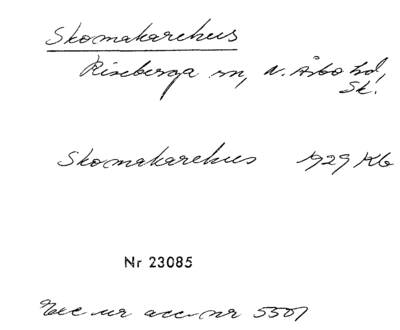 Skomakarehus
Riseberga sn, N. Åsbo hd,
Sk.
Skomakarehus 1929 Kb
Nr 23085
Exc ur acc. nr 5501